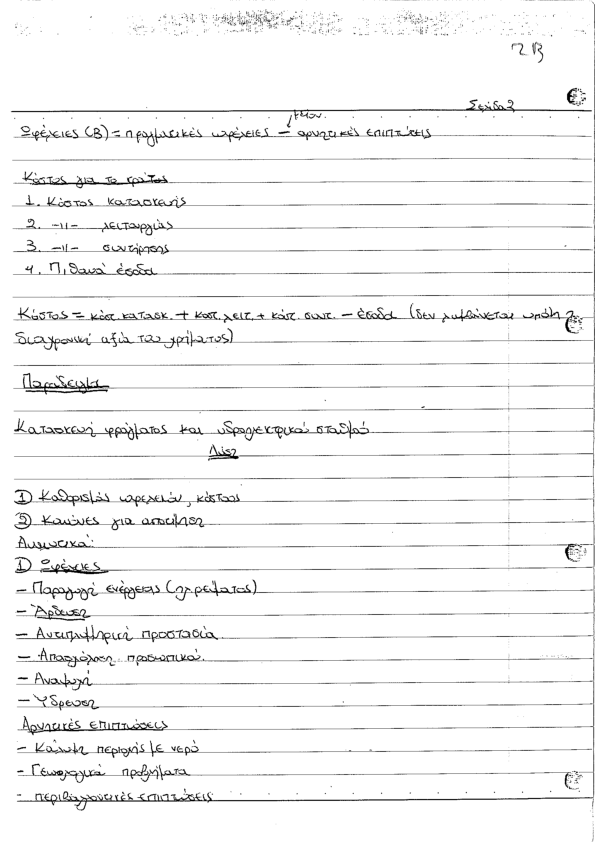 2 B
Σελίδα 2
μείον
Ωφέλειες (Β) = πραγματικές ωφέλειες - αρνητικές επιπτώσεις
Κόστος για το κράτος
1. Κόστος κατασκευής
2. -ιι- λειτουργίας
3. -ιι- συντήρησης
4. Πιθανά έσοδα
Κόστος = κόστ. κατασκ. + κοστ. λειτ. + κόστ. συντ. - έσοδα (δεν λαμβάνεται υπόψη η
διαχρονική αξία του χρήματος)
Παράδειγμα
Κατασκευή φράγματος και υδροηλεκτρικού σταθμού
Λύση
1) Καθορισμός ωφελειών, κόστους
2) Κανόνες για αποτίμηση
Αναλυτικά:
1) Ωφέλειες
- Παραγωγή ενέργειας (ηλ. ρεύματος)
- Άρδευση
- Αντιπλημμυρική προστασία
- Απασχόληση προσωπικού.
- Αναψυχή
- Ύδρευση
Αρνητικές επιπτώσεις
- Κάλυψη περιοχής με νερό
- Γεωλογικά προβλήματα
- περιβαλλοντικές επιπτώσεις